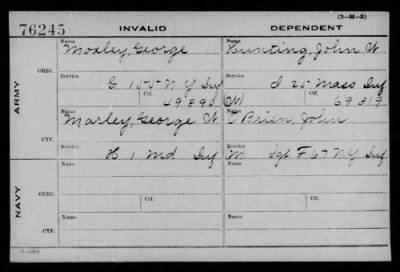 (3-M-3)
76245
INVALID
DEPENDENT
ARMY
ORIG.
Name
Moxley, George
Name
Bunting, John W
Service
G 155 N Y Inf
Service
I 25 Mass Inf
Ctf.
49890
Ctf.
69319
CTF.
Name
Marley, George W
Name
(M) O'Brien, John
Service
H 1 Md Inf
Service
M Sgt F 67 N.Y. Inf
NAVY
ORIG.
Name
Name
Service
Ctf.
Service
Ctf.
CTF.
Name
Name